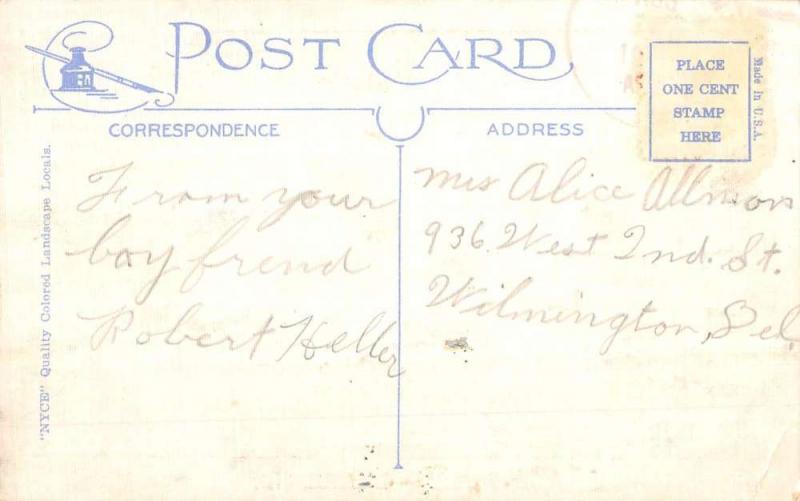 POST CARD
PLACE
ONE CENT
STAMP
HERE
Made In U.S.A.
CORRESPONDENCE
ADDRESS
"NYCE" Quality Colored Landscape Locals.
From your
boy frend
Robert Heller
Mrs Alice Allmon
936 West 2nd. St.
Wilmington, Del.